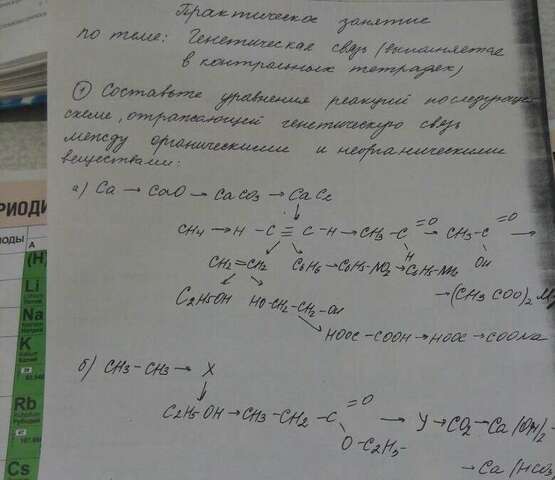 Практическое занятие
по теме: Генетическая связь (выполняется
в контрольных тетрадях)
① Составьте уравнения реакций последующе
схеме, отражающей генетическую связь
между органическими и неорганическими
веществами:
а) Ca → CaO → CaCO3 → CaC2
CH4 → H - C ≡ C - H → CH3 - C =O H → CH3 - C =O OH →
CH2 = CH2 C6H6 → C6H5-NO2 → C6H5-NH2
→ (CH3COO)2 Mg
C2H5OH HO-CH2-CH2-OH
HOOC - COOH → HOOC - COONa
б) CH3 - CH3 → X
C2H5OH → CH3 - CH2 - C =O O - C2H5 → У → CO2 → Ca(OH)2 -
→ Ca(HCO3
РИОДИ
ОДЫ
A
(H)
Li
Na
K
Rb
Cs